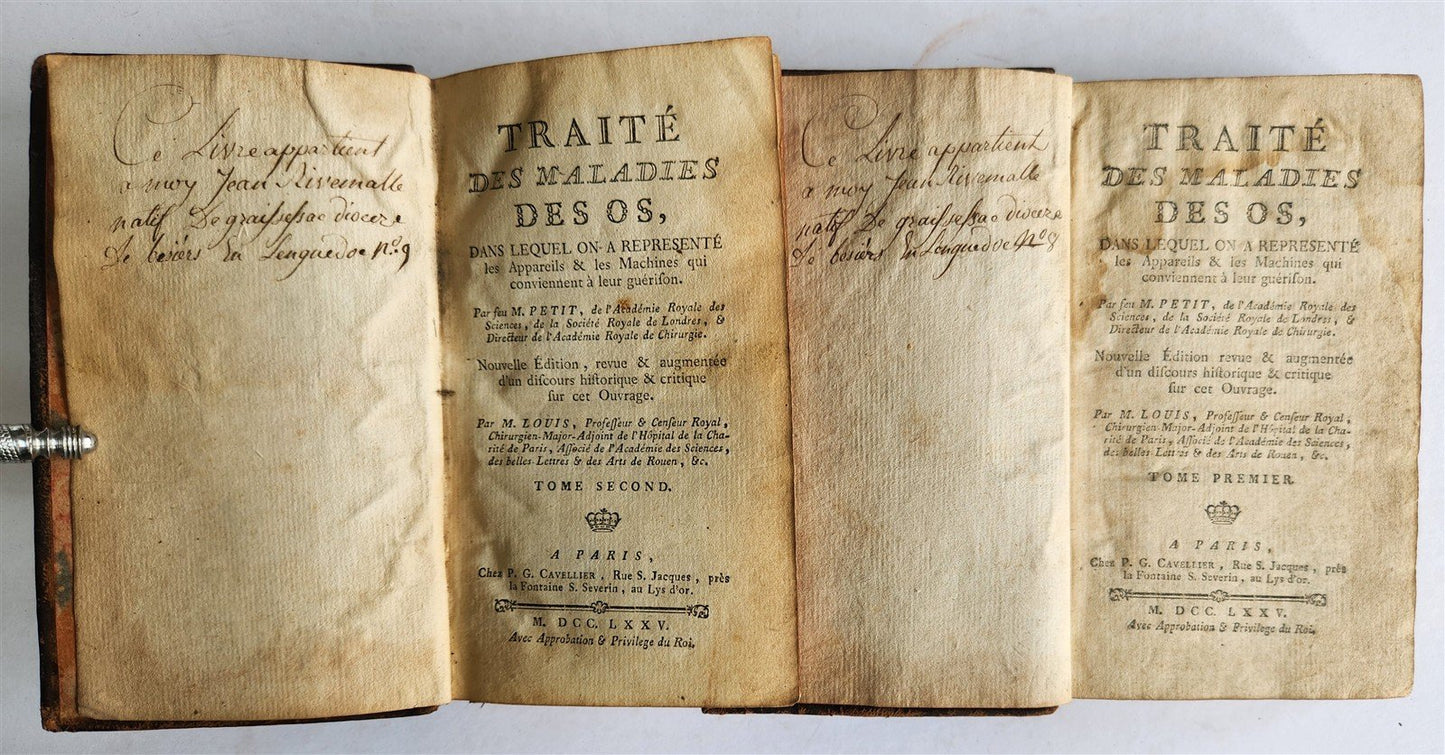 Ce Livre appartient
a moy Jean Rivemalle
natif De graissessac dioceze
De bésiérs En Lenguedoc n.º 9
TRAITÉ
DES MALADIES
DES OS,
DANS LEQUEL ON A REPRESENTÉ
les Appareils & les Machines qui
conviennent à leur guériſon.
Par feu M. PETIT, de l'Académie Royale des
Sciences, de la Société Royale de Londres, &
Directeur de l'Académie Royale de Chirurgie.
Nouvelle Édition, revue & augmentée
d'un diſcours hiſtorique & critique
ſur cet Ouvrage.
Par M. LOUIS, Profeſſeur & Cenſeur Royal,
Chirurgien-Major-Adjoint de l'Hôpital de la Cha-
rité de Paris, Aſſocié de l'Académie des Sciences,
des belles-Lettres & des Arts de Rouen, &c.
TOME SECOND.
A PARIS,
Chez P. G. CAVELLIER, Rue S. Jacques, près
la Fontaine S. Severin, au Lys d'or.
M. DCC. LXXV.
Avec Approbation & Privilege du Roi.
Ce Livre appartient
a moy Jean Rivemalle
natif De graissessac dioceze
De bésiérs En Lenguedoc n.º 8
TRAITÉ
DES MALADIES
DES OS,
DANS LEQUEL ON A REPRESENTÉ
les Appareils & les Machines qui
conviennent à leur guériſon.
Par feu M. PETIT, de l'Académie Royale des
Sciences, de la Société Royale de Londres, &
Directeur de l'Académie Royale de Chirurgie.
Nouvelle Édition revue & augmentée
d'un diſcours hiſtorique & critique
ſur cet Ouvrage.
Par M. LOUIS, Profeſſeur & Cenſeur Royal,
Chirurgien-Major-Adjoint de l'Hôpital de la Cha-
rité de Paris, Aſſocié de l'Académie des Sciences,
des belles-Lettres & des Arts de Rouen, &c.
TOME PREMIER.
A PARIS,
Chez P. G. CAVELLIER, Rue S. Jacques, près
la Fontaine S. Severin, au Lys d'or.
M. DCC. LXXV.
Avec Approbation & Privilege du Roi.